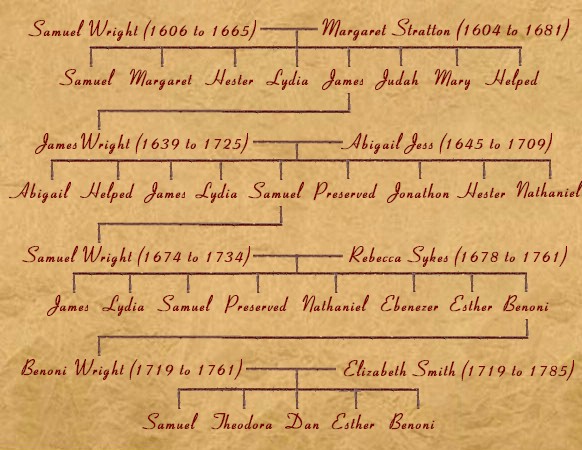 Samuel Wright (1606 to 1665) Margaret Stratton (1604 to 1681)
Samuel Margaret Hester Lydia James Judah Mary Helped
James Wright (1639 to 1725) Abigail Jess (1645 to 1709)
Abigail Helped James Lydia Samuel Preserved Jonathon Hester Nathaniel
Samuel Wright (1674 to 1734) Rebecca Sykes (1678 to 1761)
James Lydia Samuel Preserved Nathaniel Ebenezer Esther Benoni
Benoni Wright (1719 to 1761) Elizabeth Smith (1719 to 1785)
Samuel Theodora Dan Esther Benoni